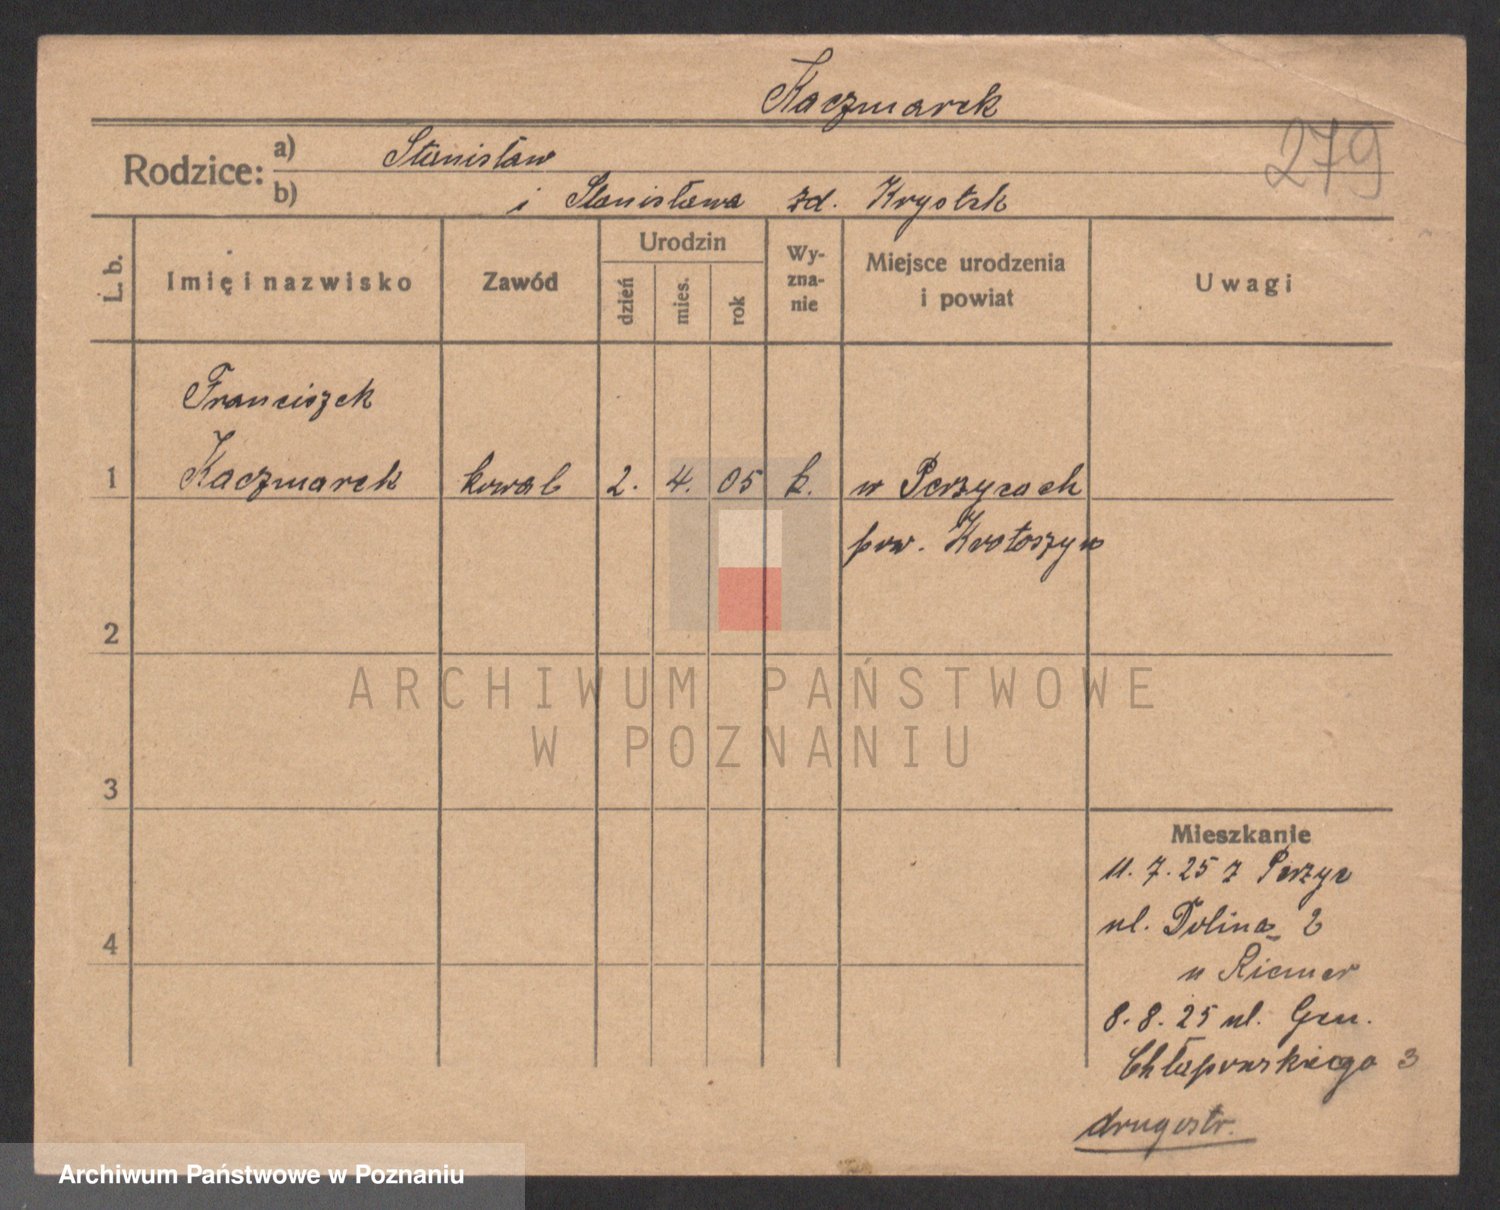 Kaczmarek
279
Rodzice: a) Stanisław
b) i Stanisława zd. Krystek
L. b.
Imię i nazwisko
Zawód
Urodzin
dzień
mies.
rok
Wy-
zna-
nie
Miejsce urodzenia
i powiat
Uwagi
Franciszek
1 Kaczmarek kowal 2. 4. 05 k. w Perzycach
pow. Krotoszyn
2
3
4
Mieszkanie
11.7.25 z Perzyc
ul. Dolina 2
u Riemer
8.8.25 ul. Gen.
Chłapowskiego 3
drug str.
ARCHIWUM PAŃSTWOWE
W POZNANIU
Archiwum Państwowe w Poznaniu